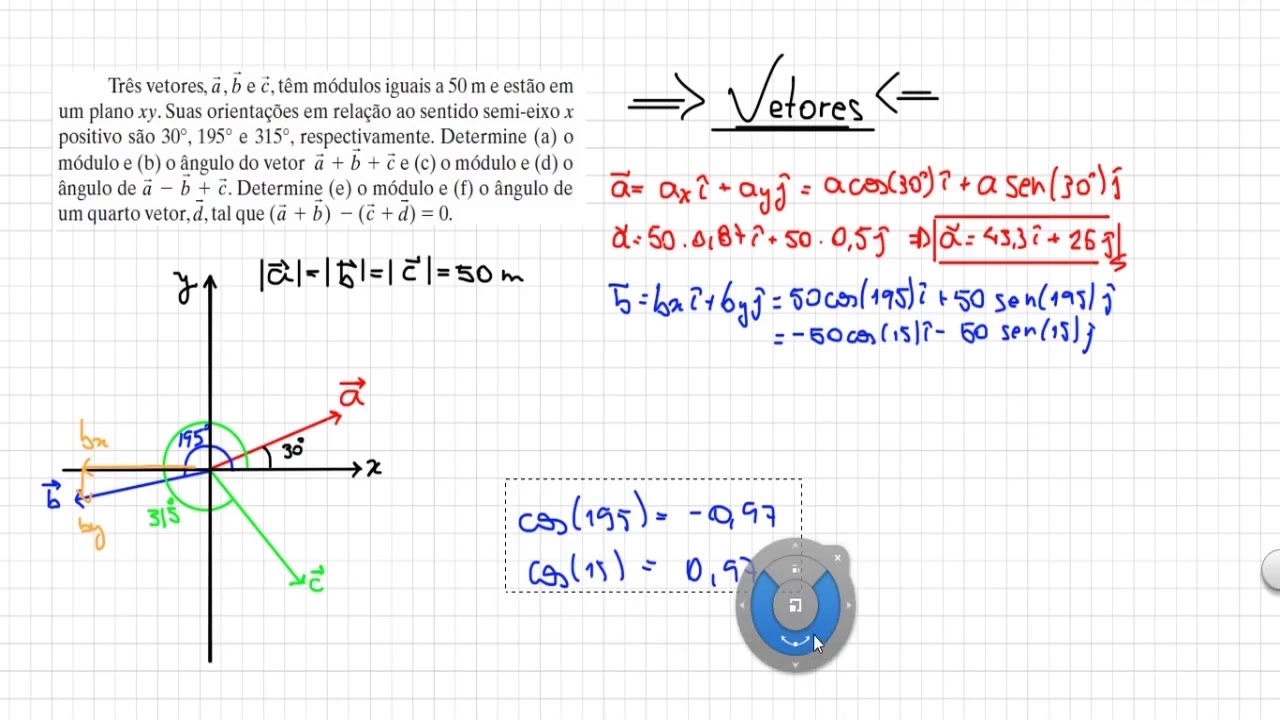 Três vetores, a⃗, b⃗ e c⃗, têm módulos iguais a 50 m e estão em
um plano xy. Suas orientações em relação ao sentido semi-eixo x
positivo são 30°, 195° e 315°, respectivamente. Determine (a) o
módulo e (b) o ângulo do vetor a⃗ + b⃗ + c⃗ e (c) o módulo e (d) o
ângulo de a⃗ − b⃗ + c⃗. Determine (e) o módulo e (f) o ângulo de
um quarto vetor, d⃗, tal que (a⃗ + b⃗) − (c⃗ + d⃗) = 0.
⇒ Vetores ⇐
a⃗ = axî + ayĵ = a cos(30°)î + a sen(30°)ĵ
a⃗ = 50 . 0,87î + 50 . 0,5ĵ ⇒ a⃗ = 43,3î + 25ĵ
b⃗ = bxî + byĵ = 50cos(195)î + 50 sen(195)ĵ
= -50cos(15)î - 50 sen(15)ĵ
|a⃗| = |b⃗| = |c⃗| = 50 m
y
a⃗
bx
195°
30°
x
b⃗
by
315°
c⃗
cos(195) = -0,97
cos(15) = 0,97